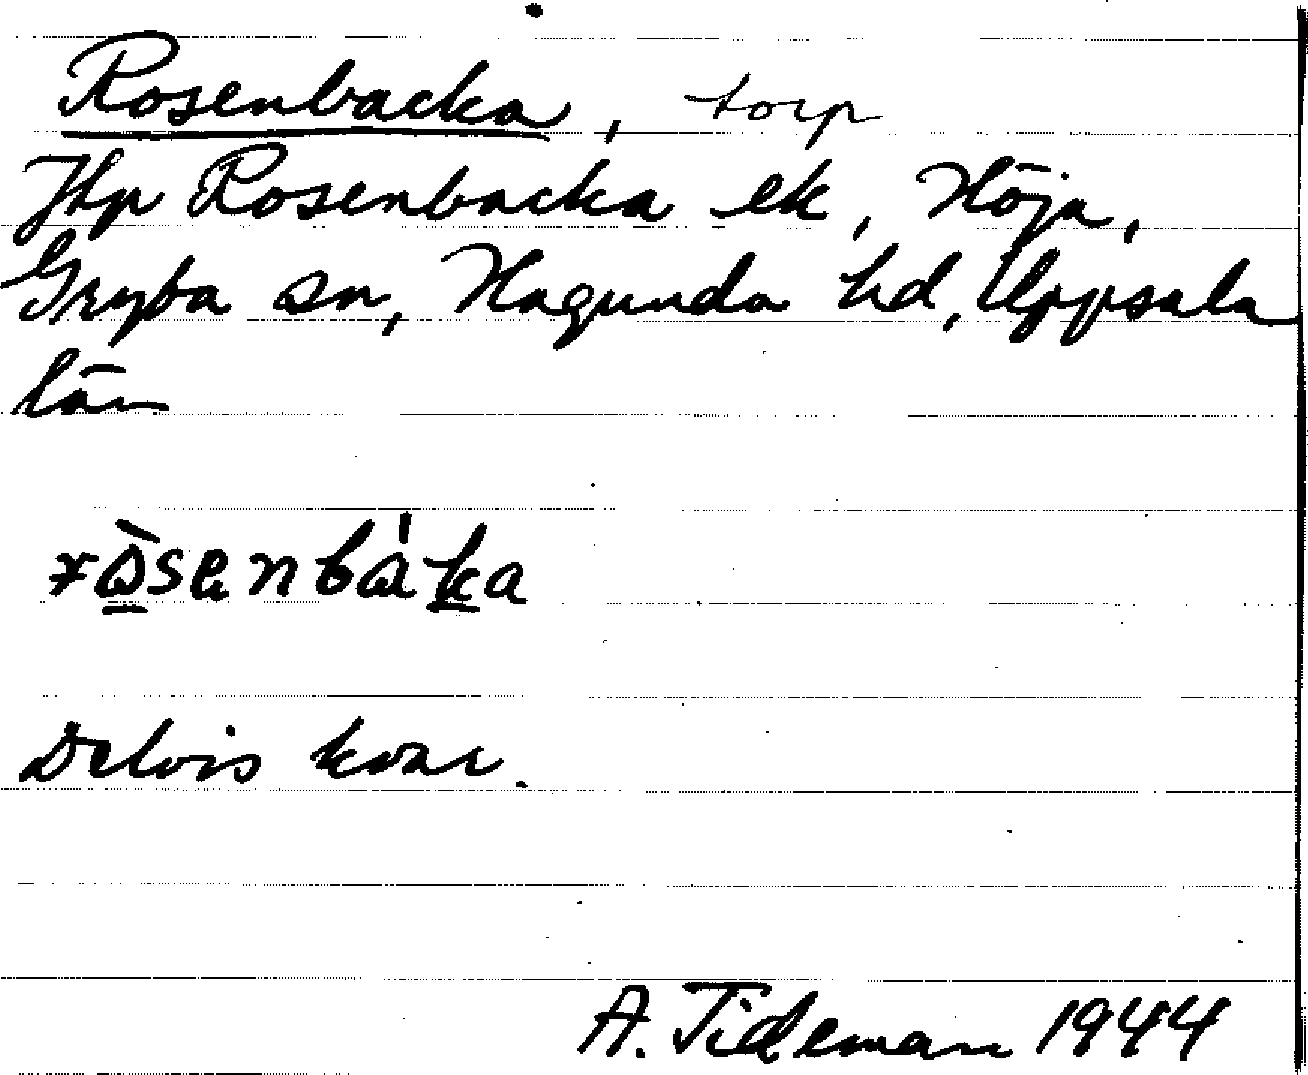 Rosenbacka, torp
Jhp Rosenbacka ek, Höja,
Gryta sn, Hagunda hd, Uppsala
län
Delvis kvar.
A. Tideman 1944